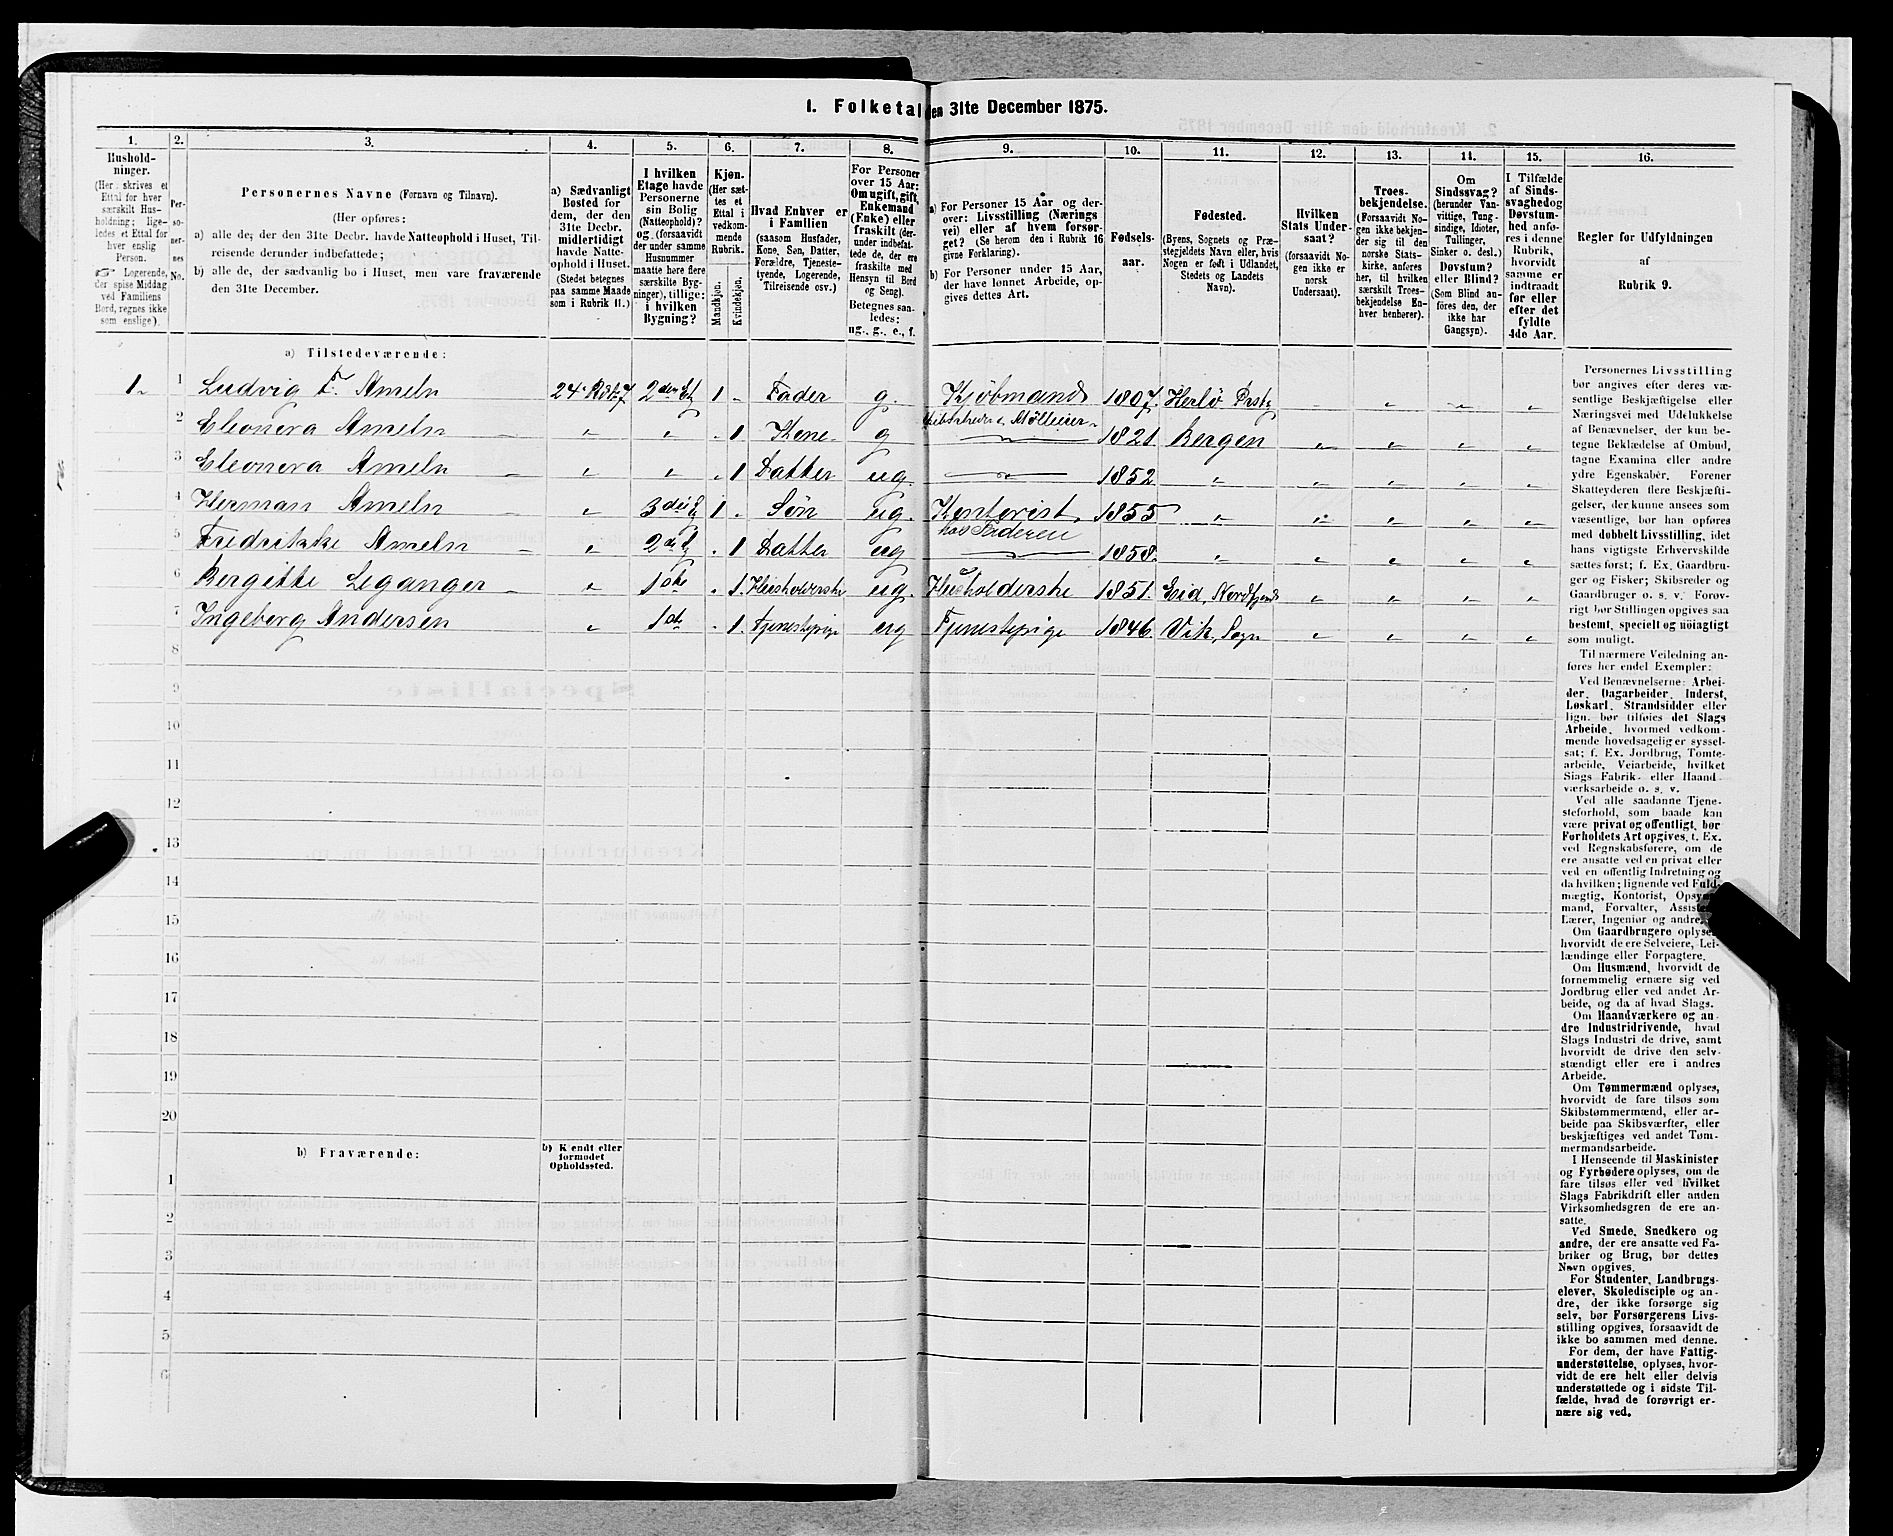 1. Folketal den 31te December 1875.
1.
Hushold-
ninger.
(Her skrives et
Ettal for hver
særskilt Hus-
holdning; lige-
ledes et Ettal for
hver enslig
Person.
☞ Logerende,
der spise Middag
ved Familiens
Bord, regnes ikke
som enslige).
2.
Per-
so-
ner-
nes
No.
3.
Personernes Navne (Fornavn og Tilnavn).
(Her opføres:
a) alle de, der den 31te Decbr. havde Natteophold i Huset, Til-
reisende derunder indbefattede;
b) alle de, der sædvanlig bo i Huset, men vare fraværende
den 31te December.
4.
a) Sædvanligt
Bosted for
dem, der den
31te Decbr.
midlertidigt
havde Natte-
ophold i Huset.
(Stedet betegnes
paa samme Maade
som i Rubrik 11.)
5.
I hvilken
Etage havde
Personerne
sin Bolig
(Natteophold)?
og (forsaavidt
der under samme
Husnummer
maatte høre flere
særskilte Byg-
ninger), tillige:
i hvilken
Bygning?
6.
Kjøn.
(Her sæt-
tes et
Ettal i
vedkom-
mende
Rubrik.
Mandkjøn.
Kvindekjøn.
7.
Hvad Enhver er
i Familien
(saasom Husfader,
Kone, Søn, Datter,
Forældre, Tjeneste-
tyende, Logerende,
Tilreisende osv.)
8.
For Personer
over 15 Aar:
Om ugift, gift,
Enkemand
(Enke) eller
fraskilt (der-
under indbefat-
tede de, der ere
fraskilte med
Hensyn til Bord
og Seng).
Betegnes saa-
ledes:
ug., g., e., f.
9.
a) For Personer 15 Aar og der-
over: Livsstilling (Nærings
vei) eller af hvem forsør-
get? (Se herom den i Rubrik 16
givne Forklaring).
b) For Personer under 15 Aar,
der have lønnet Arbeide, op-
gives dettes Art.
10.
Fødsels-
aar.
11.
Fødested.
(Byens, Sognets og Præ-
stegjeldets Navn eller, hvis
Nogen er født i Udlandet,
Stedets og Landets
Navn).
12.
Hvilken
Stats Under-
saat?
(forsaavidt No-
gen ikke er
norsk
Undersaat).
13.
Troes-
bekjendelse.
(Forsaavidt No-
gen ikke bekjen-
der sig til den
norske Stats-
kirke, anføres
her, til hvilken
særskilt Troes-
bekjendelse En-
hver henhører).
14.
Om
Sindssvag?
(herunder Van-
vittige, Tung-
sindige, Idioter,
Tullinger,
Sinker o. desl.)
Døvstum?
eller Blind?
(Som Blind an-
føres den, der
ikke har
Gangsyn).
15.
I Tilfælde
af Sinds-
svaghed og
Døvstum-
hed anfø-
res i denne
Rubrik,
hvorvidt
samme er
indtraadt
før eller
efter det
fyldte
4de Aar.
16.
Regler for Udfyldningen
af
Rubrik 9.
a) Tilstedeværende:
1. 1 Ludvig F. Ameln 24 Rode 7 2den Etg 1 - Fader g. Kjøbmand 1807 Herlø Prstg " " "
Skibsrheder & Mølleier
2 Eleonora Ameln " " " 1 Kone g — " — 1821 Bergen " " " "
3 Eleonora Ameln " " " 1 Datter ug. — " — 1852 " " " " "
4 Herman Ameln " 3die E 1 " Søn ug. Kontorist 1855 " " " " "
hos Faderen
5 Fredrikke Ameln " 2de E " 1 Datter ug — 1858. " " " " "
6 Bergitte Leganger " 1ste " 1. Husholderske ug. Husholderske 1851. Eid, Nordfjord " " " "
7 Ingeborg Andersen " 1ste " 1. Tjenestepige ug Tjenestepige 1846 Vik, Sogn " " " "
8
9
10
11
12
13
14
15
16
17
18
19
20
b) Fraværende:
b) Kjendt eller
formodet
Opholdssted.
1
2
3
4
5
6
Personernes Livsstilling
bør angives efter deres væ-
sentlige Beskjæftigelse eller
Næringsvei med Udelukkelse
af Benævnelser, der kun be-
tegne Beklædelse af Ombud,
tagne Examina eller andre
ydre Egenskaber. Forener
Skatteyderen flere Beskjæfti-
gelser, der kunne ansees som
væsentlige, bør han opføres
med dobbelt Livsstilling, idet
hans vigtigste Erhvervskilde
sættes først; f. Ex. Gaardbru-
ger og Fisker; Skibsreder og
Gaardbruger o. s. v. Forøv-
rigt bør Stillingen opgives saa
bestemt, specielt og nøiagtigt
som muligt.
Til nærmere Veiledning an-
føres her endel Exempler:
Ved Benævnelserne: Arbei-
der, Dagarbeider, Inderst,
Løskarl, Strandsidder eller
lign. bør tilføies det Slags
Arbeide, hvormed vedkom-
mende hovedsagelig er syssel-
sat; f. Ex. Jordbrug, Tomte-
arbeide, Veiarbeide, hvilket
Slags Fabrik- eller Haand-
værksarbeide o. s. v.
Ved alle saadanne Tjene-
steforhold, som baade kan
være privat og offentligt, bør
Forholdets Art opgives, t. Ex.
ved Regnskabsførere, om de
ere ansatte ved en privat eller
ved en offentlig Indretning og
da hvilken; lignende ved Fuld-
mægtig, Kontorist, Opsyns-
mand, Forvalter, Assistent,
Lærer, Ingeniør og andre.
Om Gaardbrugere oplyses,
hvorvidt de ere Selveiere, Lei-
lændinge eller Forpagtere.
Om Husmænd, hvorvidt de
fornemmelig ernære sig ved
Jordbrug eller ved andet Ar-
beide, og da af hvad Slags.
Om Haandværkere og an-
dre Industridrivende, hvad
Slags Industri de drive, samt
hvorvidt de drive den selv-
stændigt eller ere i andres
Arbeide.
Om Tømmermænd oplyses,
hvorvidt de fare tilsøs som
Skibstømmermænd, eller ar-
beide paa Skibsværfter, eller
beskjæftiges ved andet Tøm-
mermandsarbeide.
I Henseende til Maskinister
og Fyrbødere oplyses, om de
fare tilsøs eller ved hvilket
Slags Fabrikdrift eller anden
Virksomhedsgren de ere an-
satte.
Ved Smede, Snedkere og
andre, der ere ansatte ved Fa-
briker og Brug, bør dettes
Navn opgives.
For Studenter, Landbrugs-
elever, Skoledisciple og an-
dre, der ikke forsørge sig
selv, bør Forsørgerens Livs-
stilling opgives, forsaavidt de
ikke bo sammen med denne.
For dem, der have Fattig-
understøttelse, oplyses, hvor-
vidt de ere helt eller delvis
understøttede og i sidste Til-
fælde, hvad de forøvrigt er-
nære sig ved.